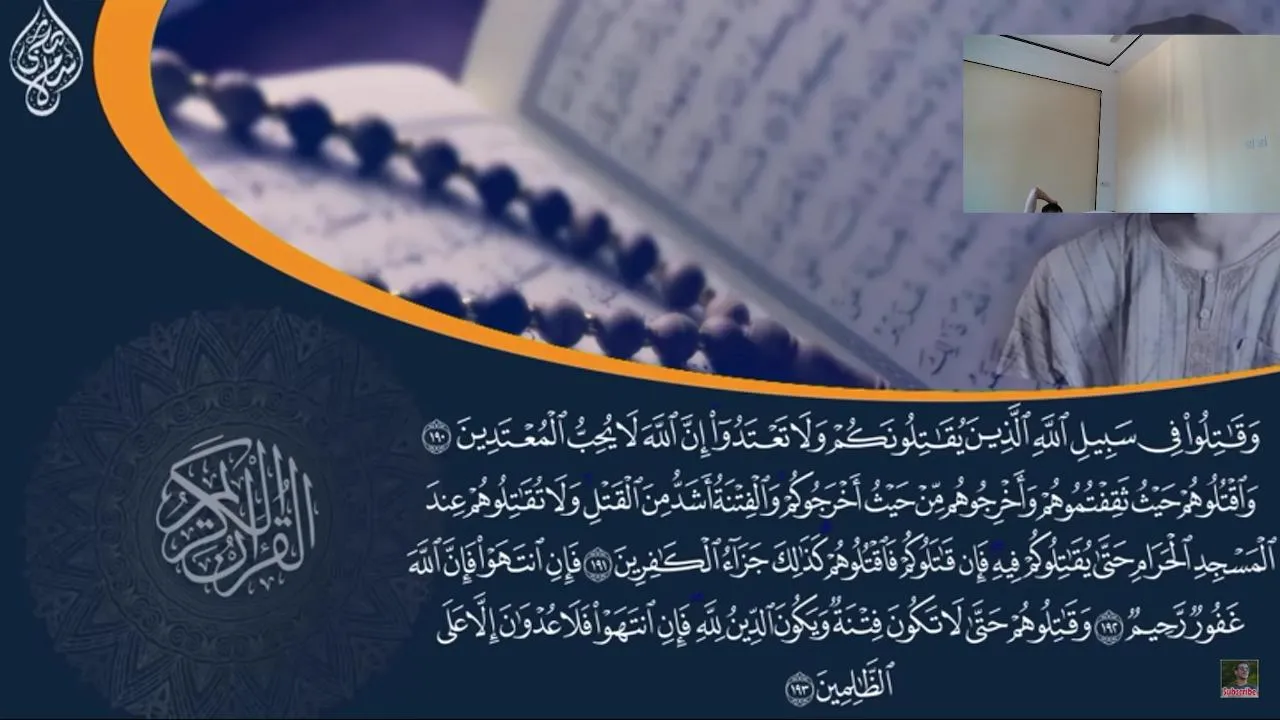 وَقَٰتِلُوا۟ فِى سَبِيلِ ٱللَّهِ ٱلَّذِينَ يُقَٰتِلُونَكُمْ وَلَا تَعْتَدُوٓا۟ إِنَّ ٱللَّهَ لَا يُحِبُّ ٱلْمُعْتَدِينَ ١٩٠
وَٱقْتُلُوهُمْ حَيْثُ ثَقِفْتُمُوهُمْ وَأَخْرِجُوهُم مِّنْ حَيْثُ أَخْرَجُوكُمْ وَٱلْفِتْنَةُ أَشَدُّ مِنَ ٱلْقَتْلِ وَلَا تُقَٰتِلُوهُمْ عِندَ
ٱلْمَسْجِدِ ٱلْحَرَامِ حَتَّىٰ يُقَٰتِلُوكُمْ فِيهِ فَإِن قَٰتَلُوكُمْ فَٱقْتُلُوهُمْ كَذَٰلِكَ جَزَآءُ ٱلْكَٰفِرِينَ ١٩١ فَإِنِ ٱنتَهَوْا۟ فَإِنَّ ٱللَّهَ
غَفُورٌ رَّحِيمٌ ١٩٢ وَقَٰتِلُوهُمْ حَتَّىٰ لَا تَكُونَ فِتْنَةٌ وَيَكُونَ ٱلدِّينُ لِلَّهِ فَإِنِ ٱنتَهَوْا۟ فَلَا عُدْوَٰنَ إِلَّا عَلَى
ٱلظَّٰلِمِينَ ١٩٣
القرآن الكريم
Subscribe